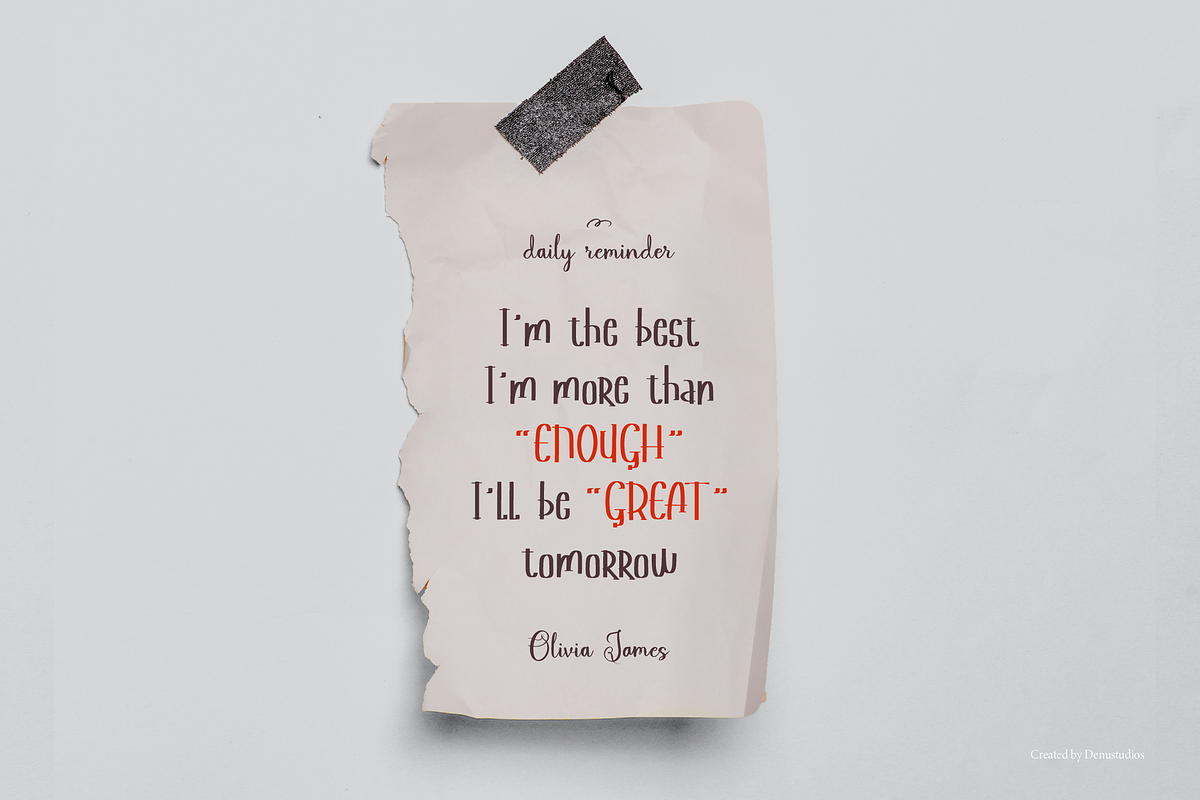 daily reminder
I'm the best
I'm more than
"ENOUGH"
I'LL be "GREAT"
tomorrow
Olivia James
Created by Denustudios